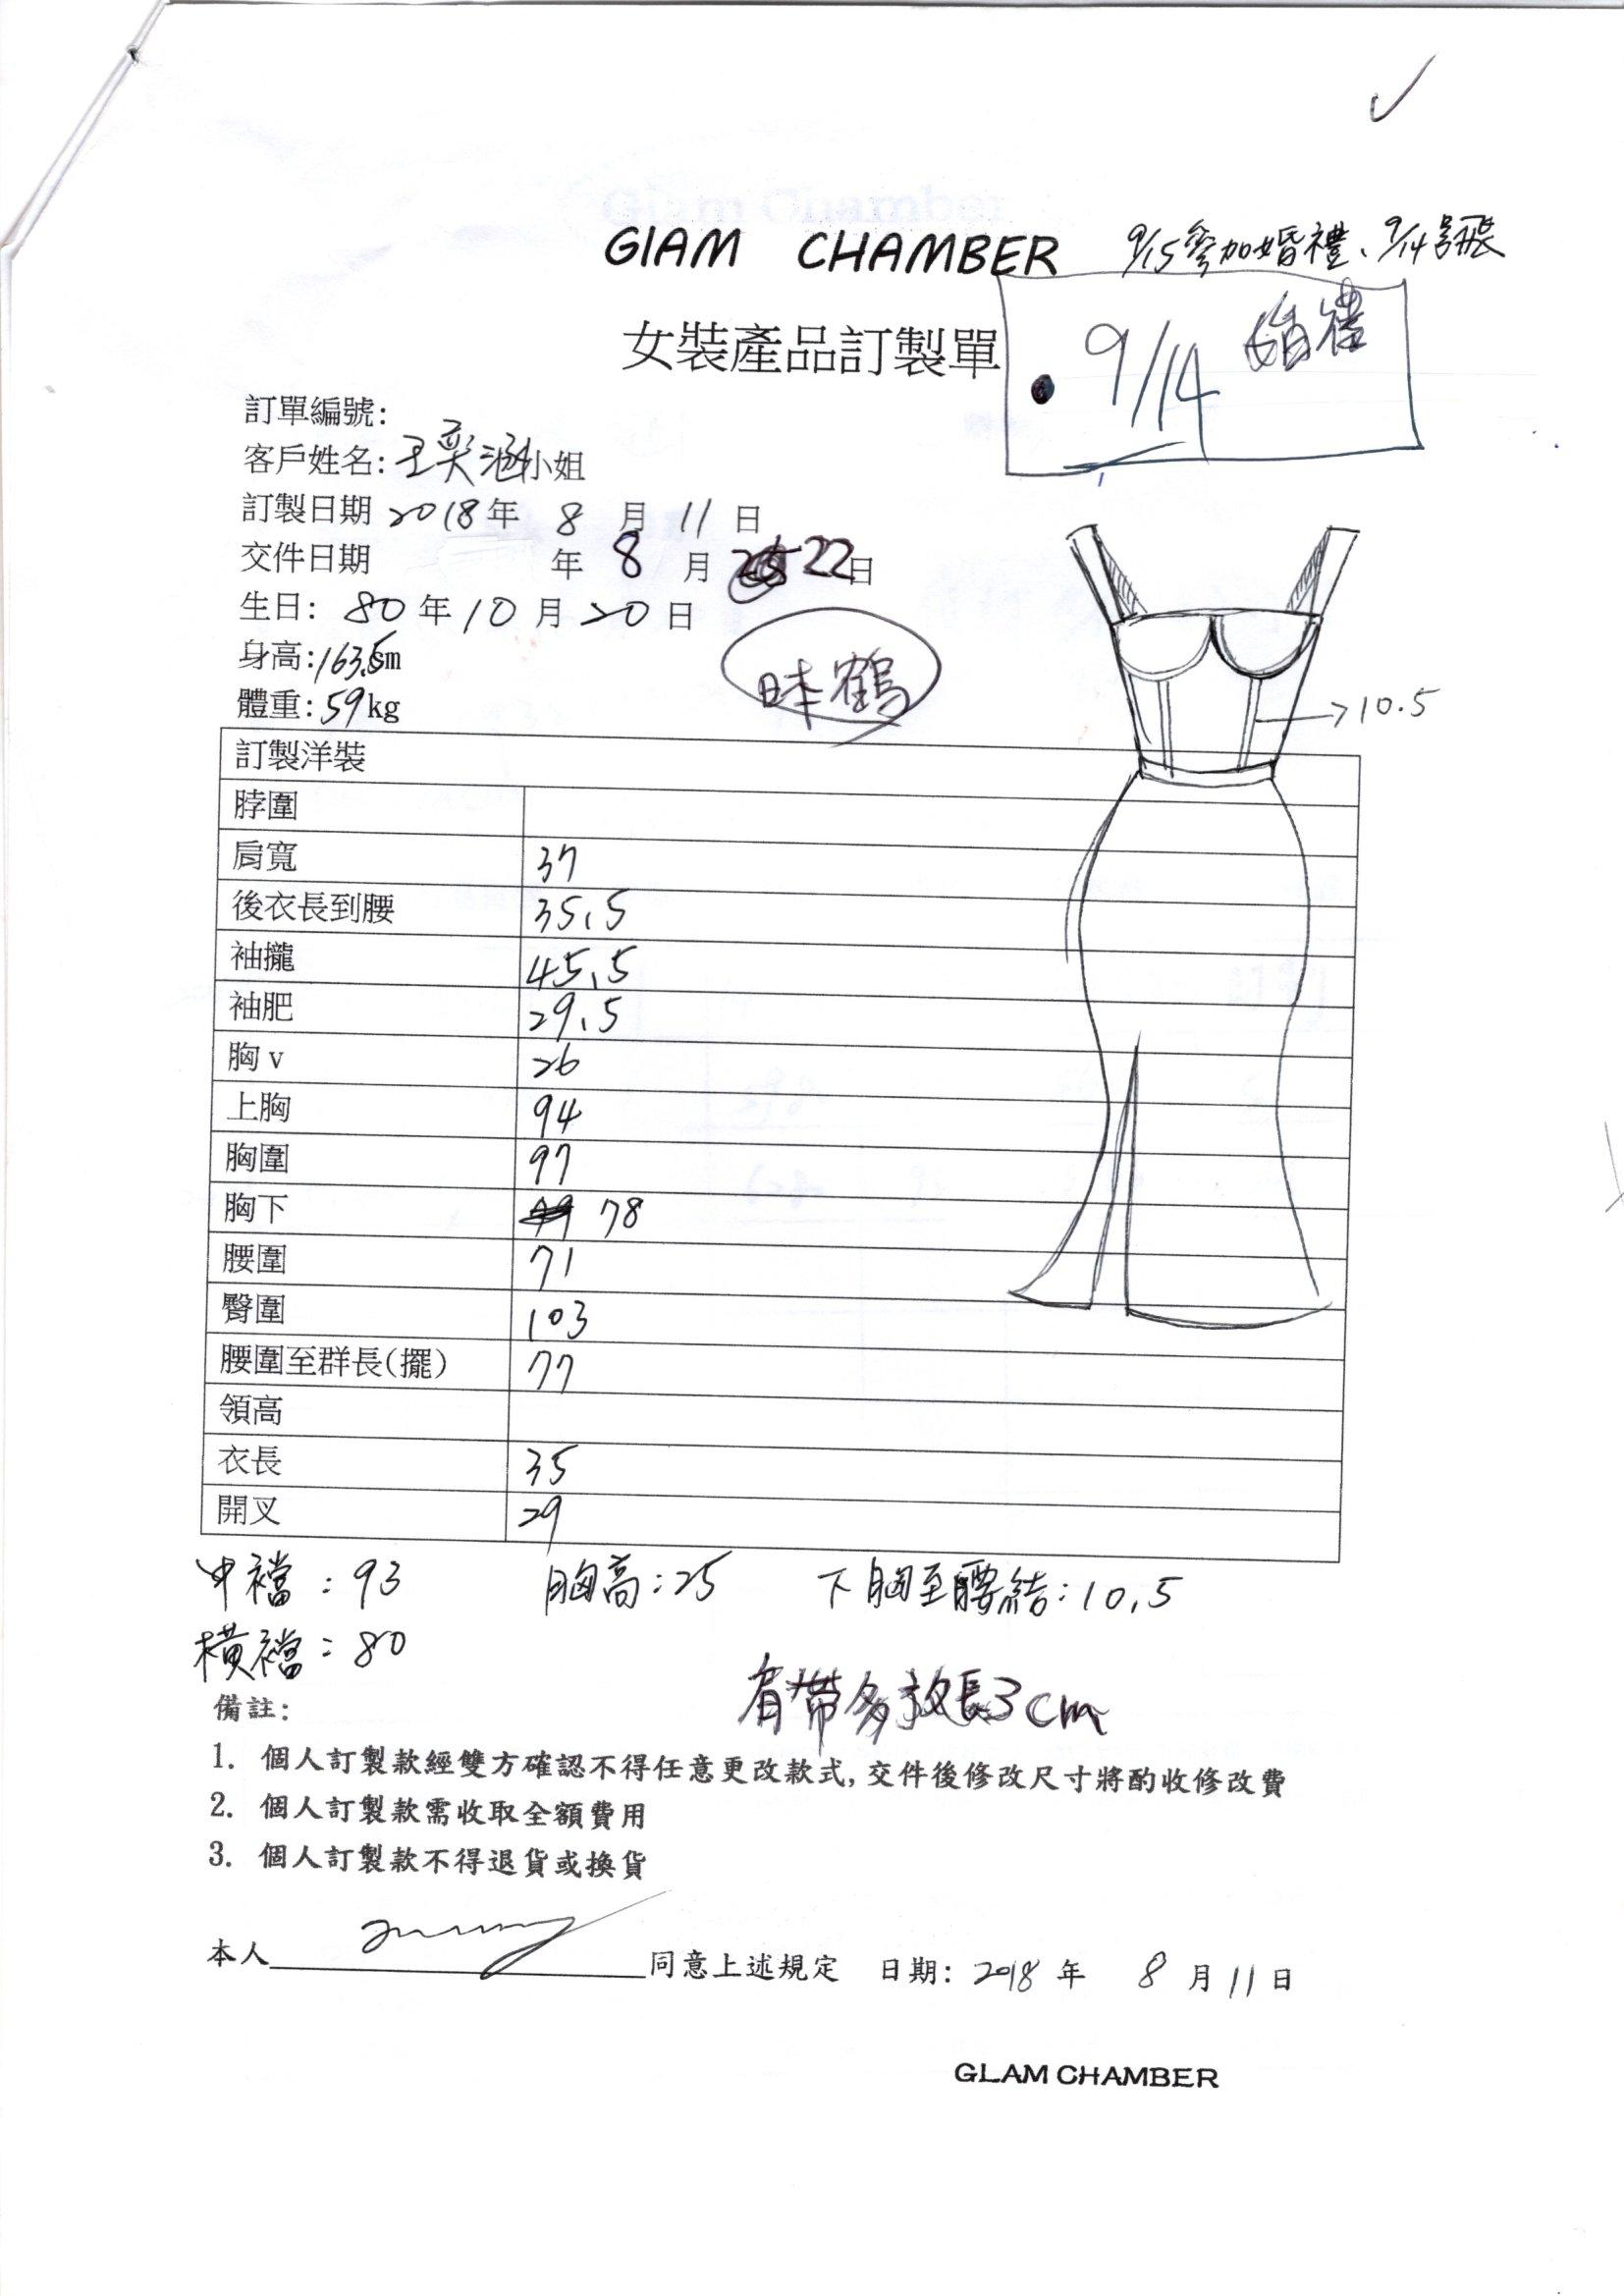 GIAM CHAMBER
9/15參加婚禮、9/14號飛
女裝產品訂製單
9/14 婚禮
訂單編號:
客戶姓名:王奕涵小姐
訂製日期 2018年 8 月 11 日
交件日期 年 8 月 22日
生日: 80年10月20日
身高:163.5cm
體重:59kg
鶴
>10.5
訂製洋裝
脖圍
肩寬 37
後衣長到腰 35.5
袖攏 45.5
袖肥 29.5
胸v 26
上胸 94
胸圍 97
胸下 78
腰圍 71
臀圍 103
腰圍至群長(擺) 77
領高
衣長 35
開叉 29
中襠:93 胸高:25 下胸至腰結:10.5
橫襠:80
肩帶多放長3cm
備註:
1. 個人訂製款經雙方確認不得任意更改款式,交件後修改尺寸將酌收修改費
2. 個人訂製款需收取全額費用
3. 個人訂製款不得退貨或換貨
本人 同意上述規定 日期: 2018年 8月11日
GLAM CHAMBER